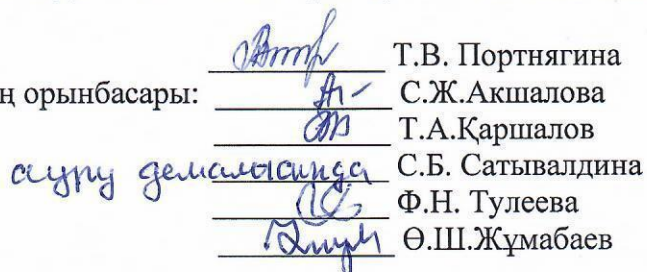 Т.В. Портнягина
ң орынбасары: С.Ж.Акшалова
Т.А.Қаршалов
ауру демалысында С.Б. Сатывалдина
Ф.Н. Тулеева
Ө.Ш.Жұмабаев